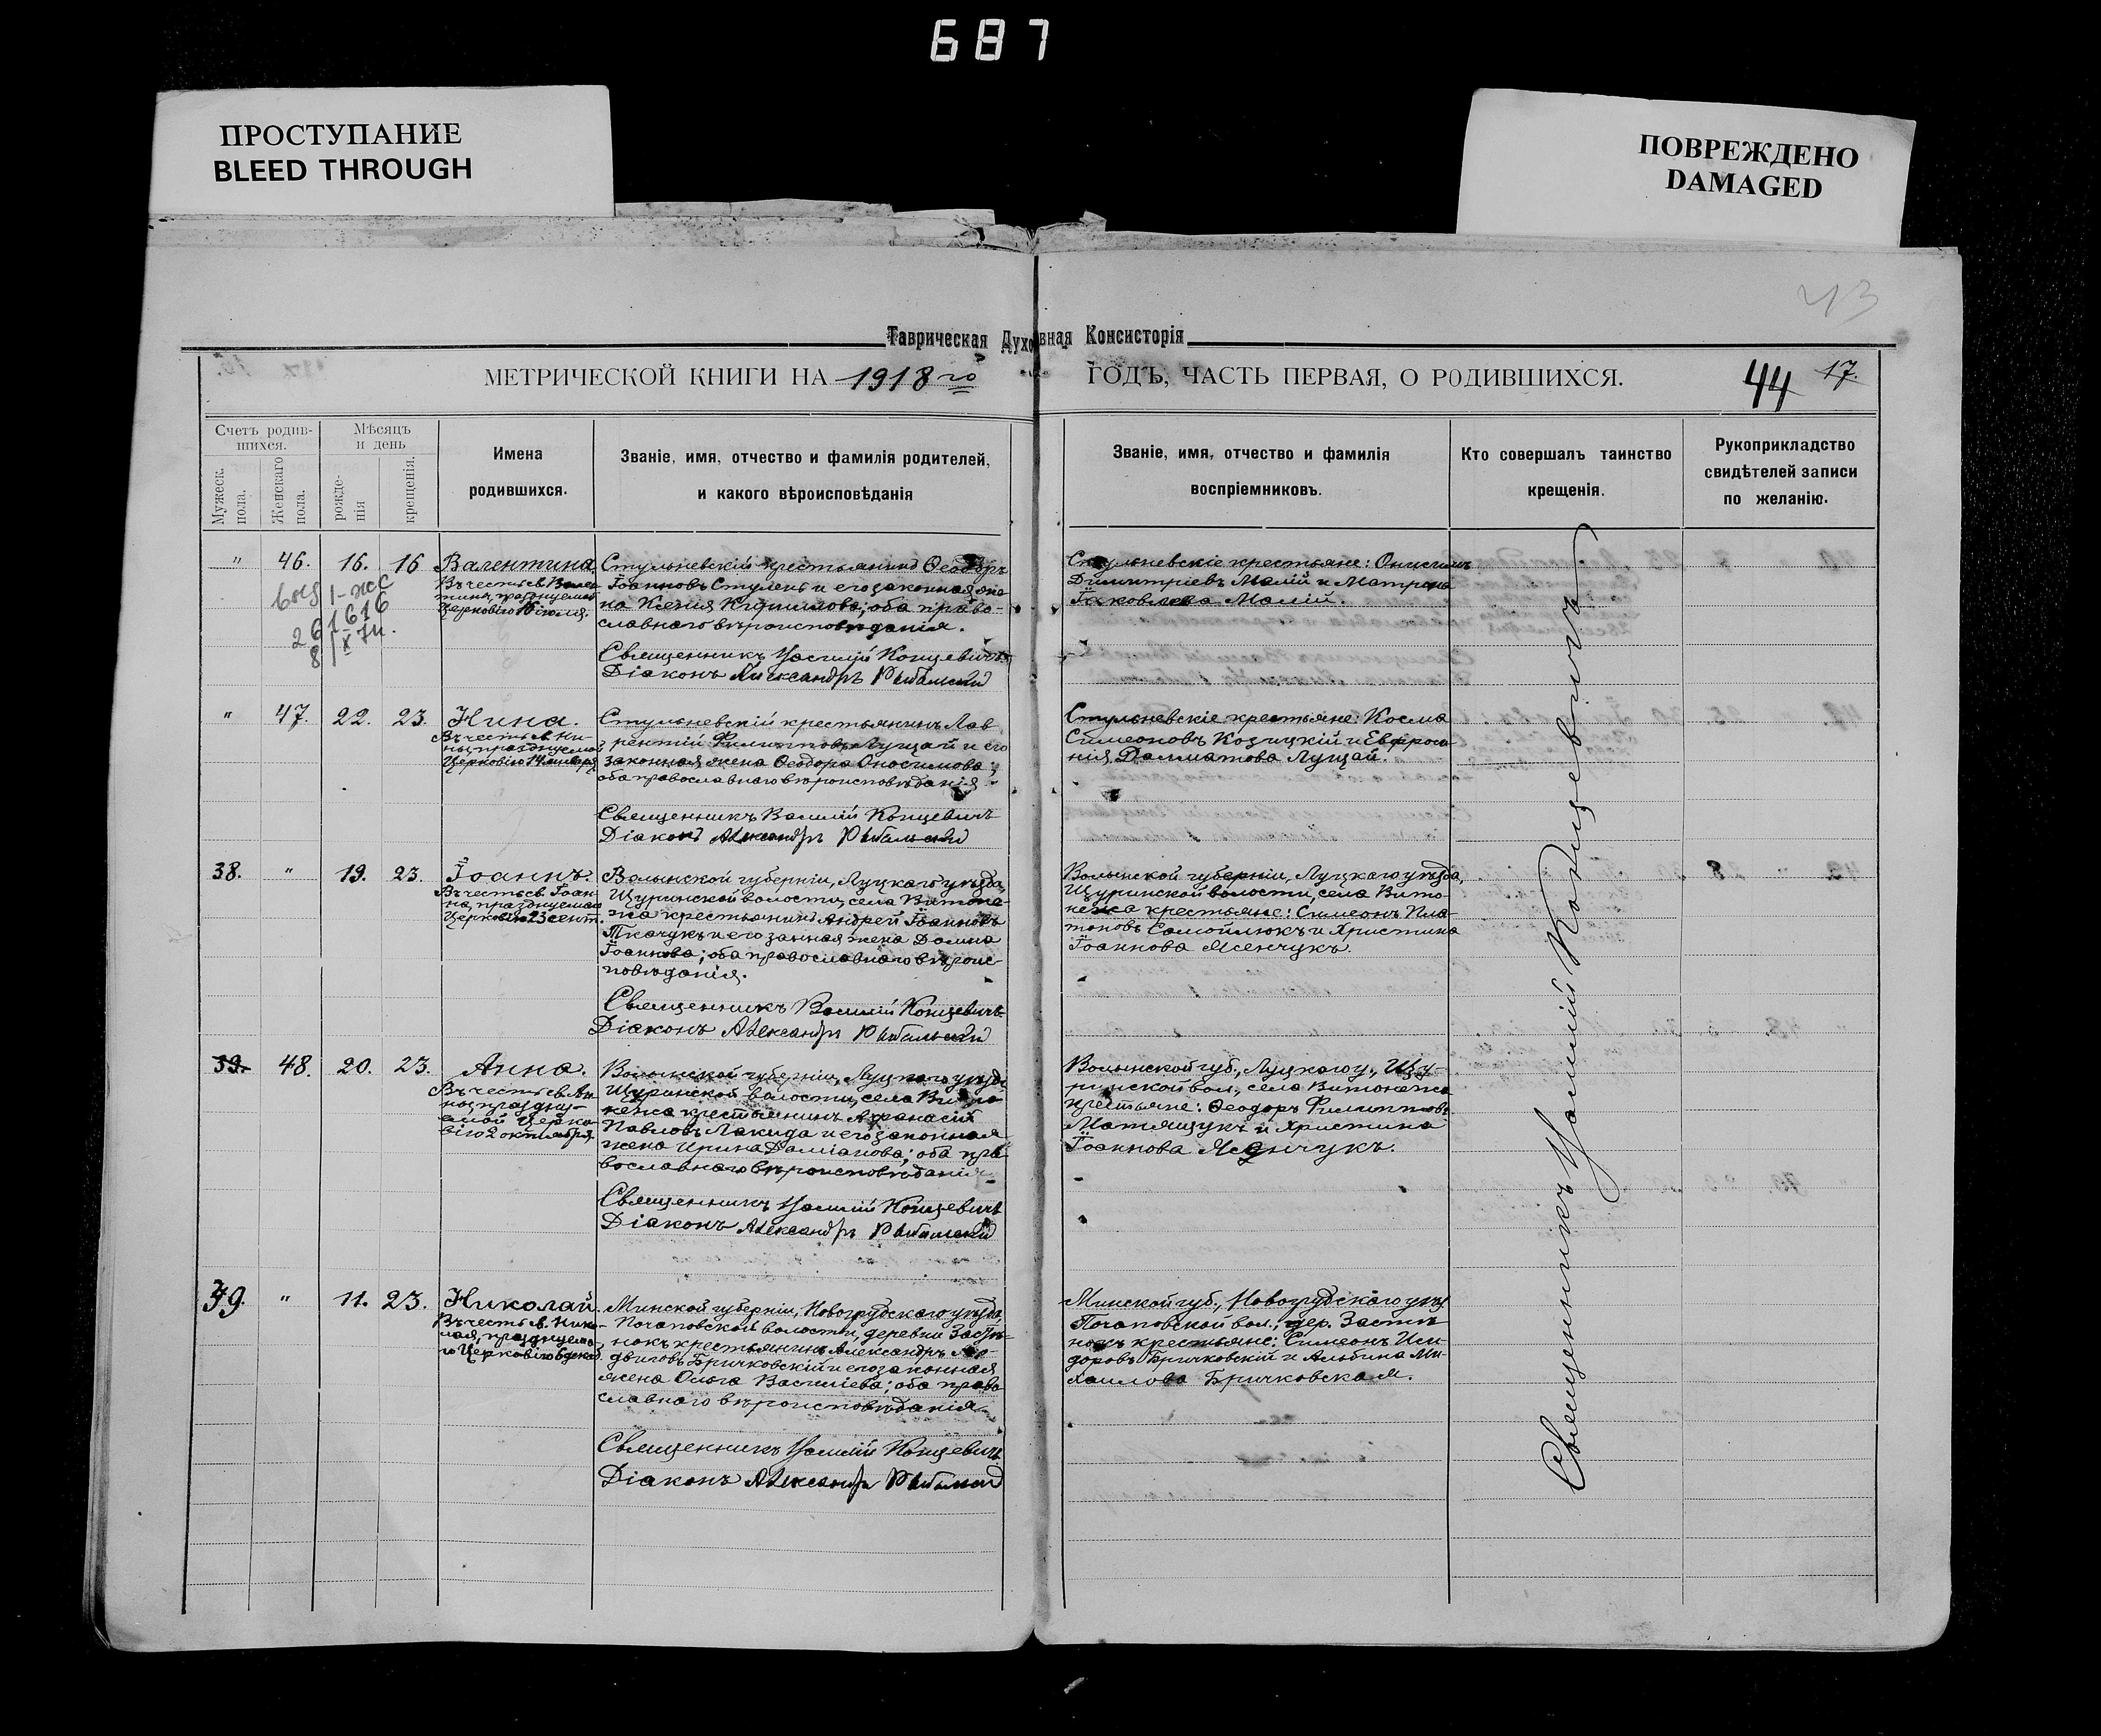 687
ПРОСТУПАНИЕ
BLEED THROUGH
ПОВРЕЖДЕНО
DAMAGED
43
Таврическая Духовная Консисторія
МЕТРИЧЕСКОЙ КНИГИ НА 1918го ГОДЪ, ЧАСТЬ ПЕРВАЯ, О РОДИВШИХСЯ.
44 17.
Счетъ родив-
шихся.
Мужеск.
пола.
Женскаго
пола.
Мѣсяцъ
и день
рожде-
нія
крещенія.
Имена
родившихся.
Званіе, имя, отчество и фамилія родителей,
и какого вѣроисповѣданія
Званіе, имя, отчество и фамилія
воспріемниковъ.
Кто совершалъ таинство
крещенія.
Рукоприкладство
свидѣтелей записи
по желанію.
" 46. 16. 16
Валентина.
Въ честь св. Вален-
тины, празднуемой
Церковію 16 іюля.
261616
8/X 74.
Стульневскій крестьянинъ Ѳеодоръ
Іоанновъ Стулень и его законная же-
на Ксенія; оба право-
славнаго вѣроисповѣданія.
Священникъ Василій Концевичъ
Діаконъ Александръ Рыбальскій
Стульневскіе крестьяне: Онисимъ
Димитріевъ Малій и Матрона
Іаковлева Малій.
" 47. 22. 23.
Нина.
Въ честь св. Ни-
ны, празднуемой
Церковію 14 января
Стульневскій крестьянинъ Лав-
рентій Филипповъ Луцай и его
законная жена Ѳеодора Онисимова;
оба православнаго вѣроисповѣданія.
Священникъ Василій Концевичъ
Діаконъ Александръ Рыбальскій
Стульневскіе крестьяне: Косма
Симеоновъ Козицкій и Евфроси-
нія Далматова Луцай.
38. " 19. 23.
Іоаннъ.
Въ честь св. Іоан-
на, празднуемаго
Церковію 23 сент.
Волынской губерніи, Луцкаго уѣзда,
Щуринской волости, села Витоне-
жа крестьянинъ Андрей Іоанновъ
Ткачукъ и его занная жена Домна
Іоаннова; оба православнаго вѣроис-
повѣданія.
Священникъ Василій Концевичъ
Діаконъ Александръ Рыбальскій
Волынской губерніи, Луцкаго уѣзда,
Щуринской волости, села Вито-
нежа крестьяне: Симеонъ Пла-
тоновъ Самойлюкъ и Христина
Іоаннова Ясенчукъ.
39. 48. 20. 23.
Анна.
Въ честь св. Ан-
ны, праздну-
емой Церко-
вію 2 октября.
Волынской губерніи, Луцкаго уѣзда
Щуринской волости, села Вито-
нежа крестьянинъ Аѳанасій
Павловъ Лакида и его законная
жена Ирина Даміанова; оба пра-
вославнаго вѣроисповѣданія.
Священникъ Василій Концевичъ
Діаконъ Александръ Рыбальскій
Волынской губ., Луцкаго у., Щу-
ринской вол., села Витонежа
крестьяне: Ѳеодоръ Филипповъ
Матящукъ и Христина
Іоаннова Ясенчукъ.
39. " 11. 23.
Николай.
Въ честь св. Нико-
лая, празднуема-
го Церковію 6 декаб.
Минской губерніи, Новогрудскаго уѣзда,
Почаповской волости, деревни Застѣ-
нокъ крестьянинъ Александръ Лю-
двиговъ Бричковскій и его законная
жена Ольга Василіева; оба право-
славнаго вѣроисповѣданія.
Священникъ Василій Концевичъ
Діаконъ Александръ Рыбальскій
Минской губ., Новогрудскаго уѣз.
Почаповской вол., дер. Застѣ-
нокъ крестьяне: Симеонъ Иси-
доровъ Бричковскій и Альбина Ми-
хаилова Бричковская.
Священникъ Василій Концевичъ.